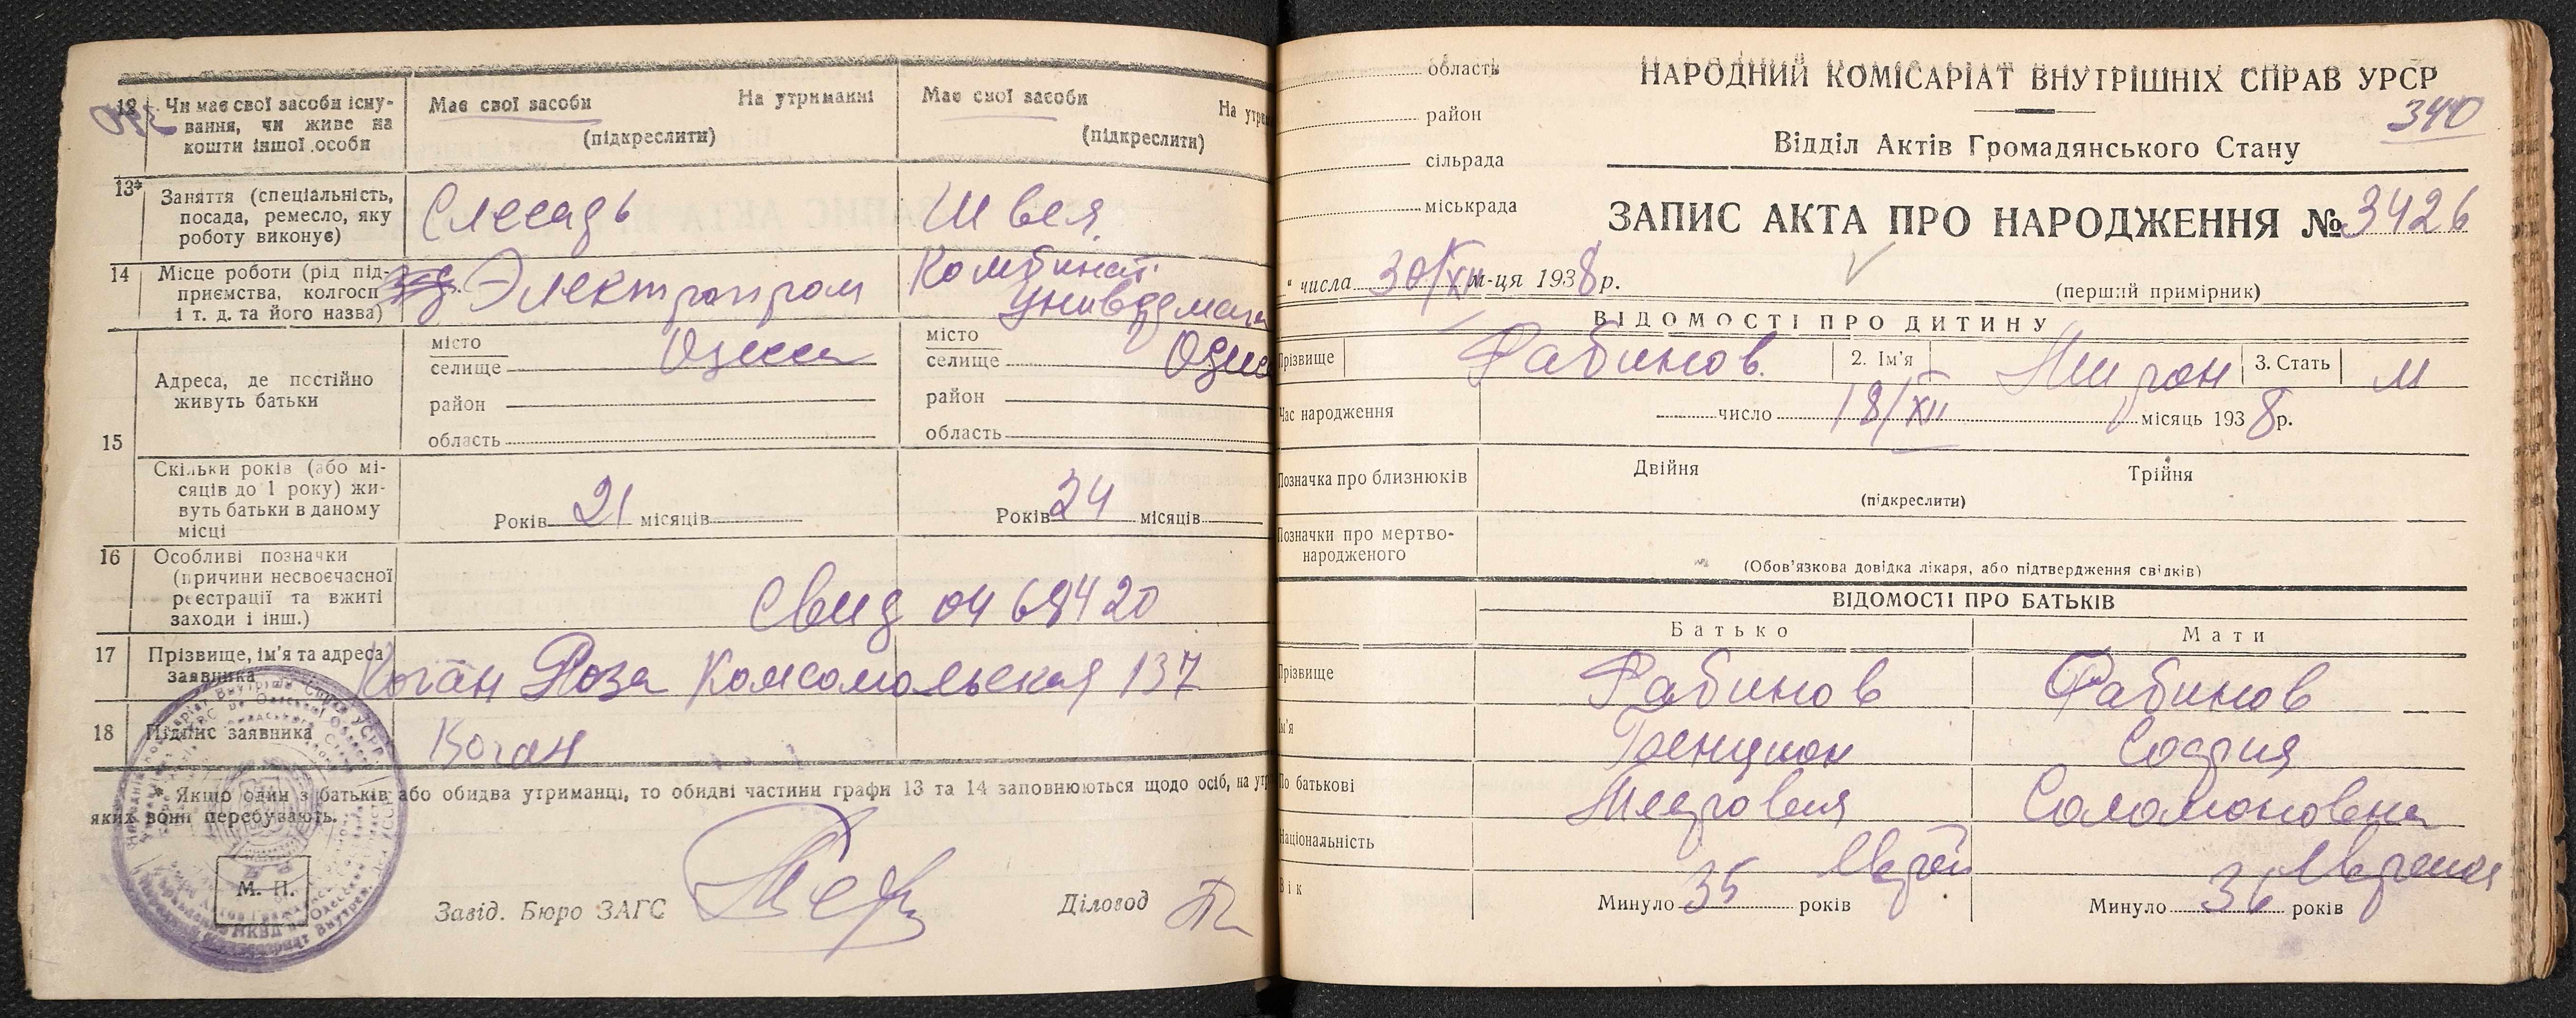 12 Чи має свої засоби існування, чи живе на кошти іншої особи
Має свої засоби На утриманні
(підкреслити)
Має свої засоби На утри
(підкреслити)
13* Заняття (спеціальність, посада, ремесло, яку роботу виконує)
Слесарь
Швея
14 Місце роботи (рід підприємства, колгосп і т. д. та його назва)
Электропром
Комбинат
15 Адреса, де постійно живуть батьки
місто
селище Одесса
район
область
місто
селище Одесс
район
область
Скільки років (або місяців до 1 року) живуть батьки в даному місці
Років 21 місяців
Років 24 місяців
16 Особливі позначки (причини несвоєчасної реєстрації та вжиті заходи і інш.)
Свид 04 69420
17 Прізвище, ім'я та адреса заявника
Коган Роза Комсомольская 137
18 Підпис заявника
Коган
* Якщо один з батьків або обидва утриманці, то обидві частини графи 13 та 14 заповнюються щодо осіб, на утр
яких вони перебувають.
М. П.
Завід. Бюро ЗАГС
Діловод
область
район
сільрада
міськрада
НАРОДНИЙ КОМІСАРІАТ ВНУТРІШНІХ СПРАВ УРСР
340
Відділ Актів Громадянського Стану
ЗАПИС АКТА ПРО НАРОДЖЕННЯ № 3426
" числа 30/XII м-ця 1938 р.
(перший примірник)
ВІДОМОСТІ ПРО ДИТИНУ
Прізвище Рабинов 2. Ім'я Мирон 3. Стать М
Час народження число 18/XII місяць 1938 р.
Позначка про близнюків Двійня Трійня
(підкреслити)
Позначки про мертвонародженого
(Обов'язкова довідка лікаря, або підтвердження свідків)
ВІДОМОСТІ ПРО БАТЬКІВ
Батько Мати
Прізвище Рабинов Рабинов
Ім'я Бенцион София
По батькові Соломоновна
Національність Еврей Еврейка
Вік Минуло 35 років Минуло 36 років